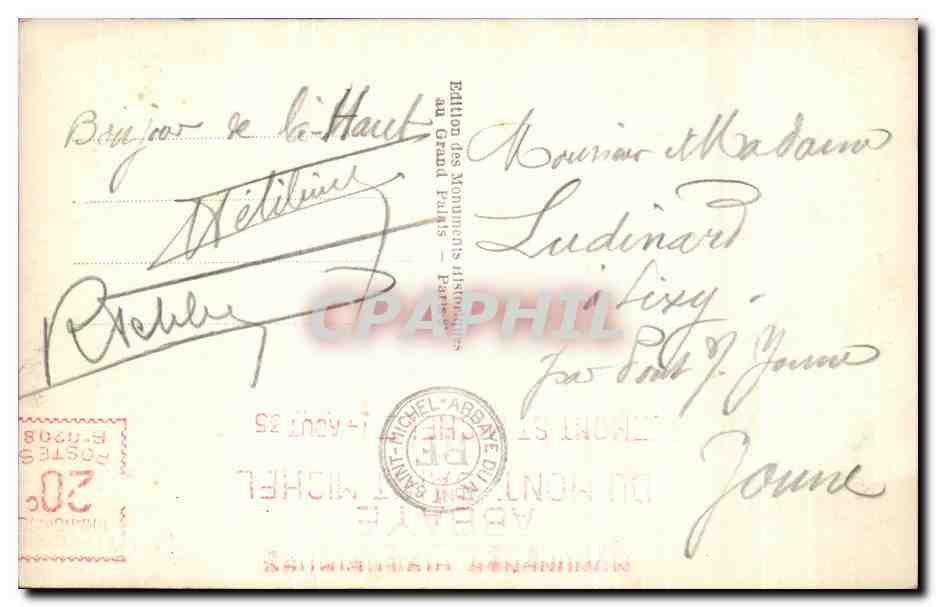 Bonjour de là-Haut
Edition des Monuments Historiques
au Grand Palais — Paris
Monsieur et Madame
Ludinard
à Lixy.
par Pont s/ Yonne
Yonne
CPAPHIL
ABBAYE DU MONT SAINT-MICHEL
RF
POSTES
B·0208
20c
LE MONT ST MICHEL 1-AOUT 35
ABBAYE
DU MONT ST MICHEL
MONUMENTS HISTORIQUES